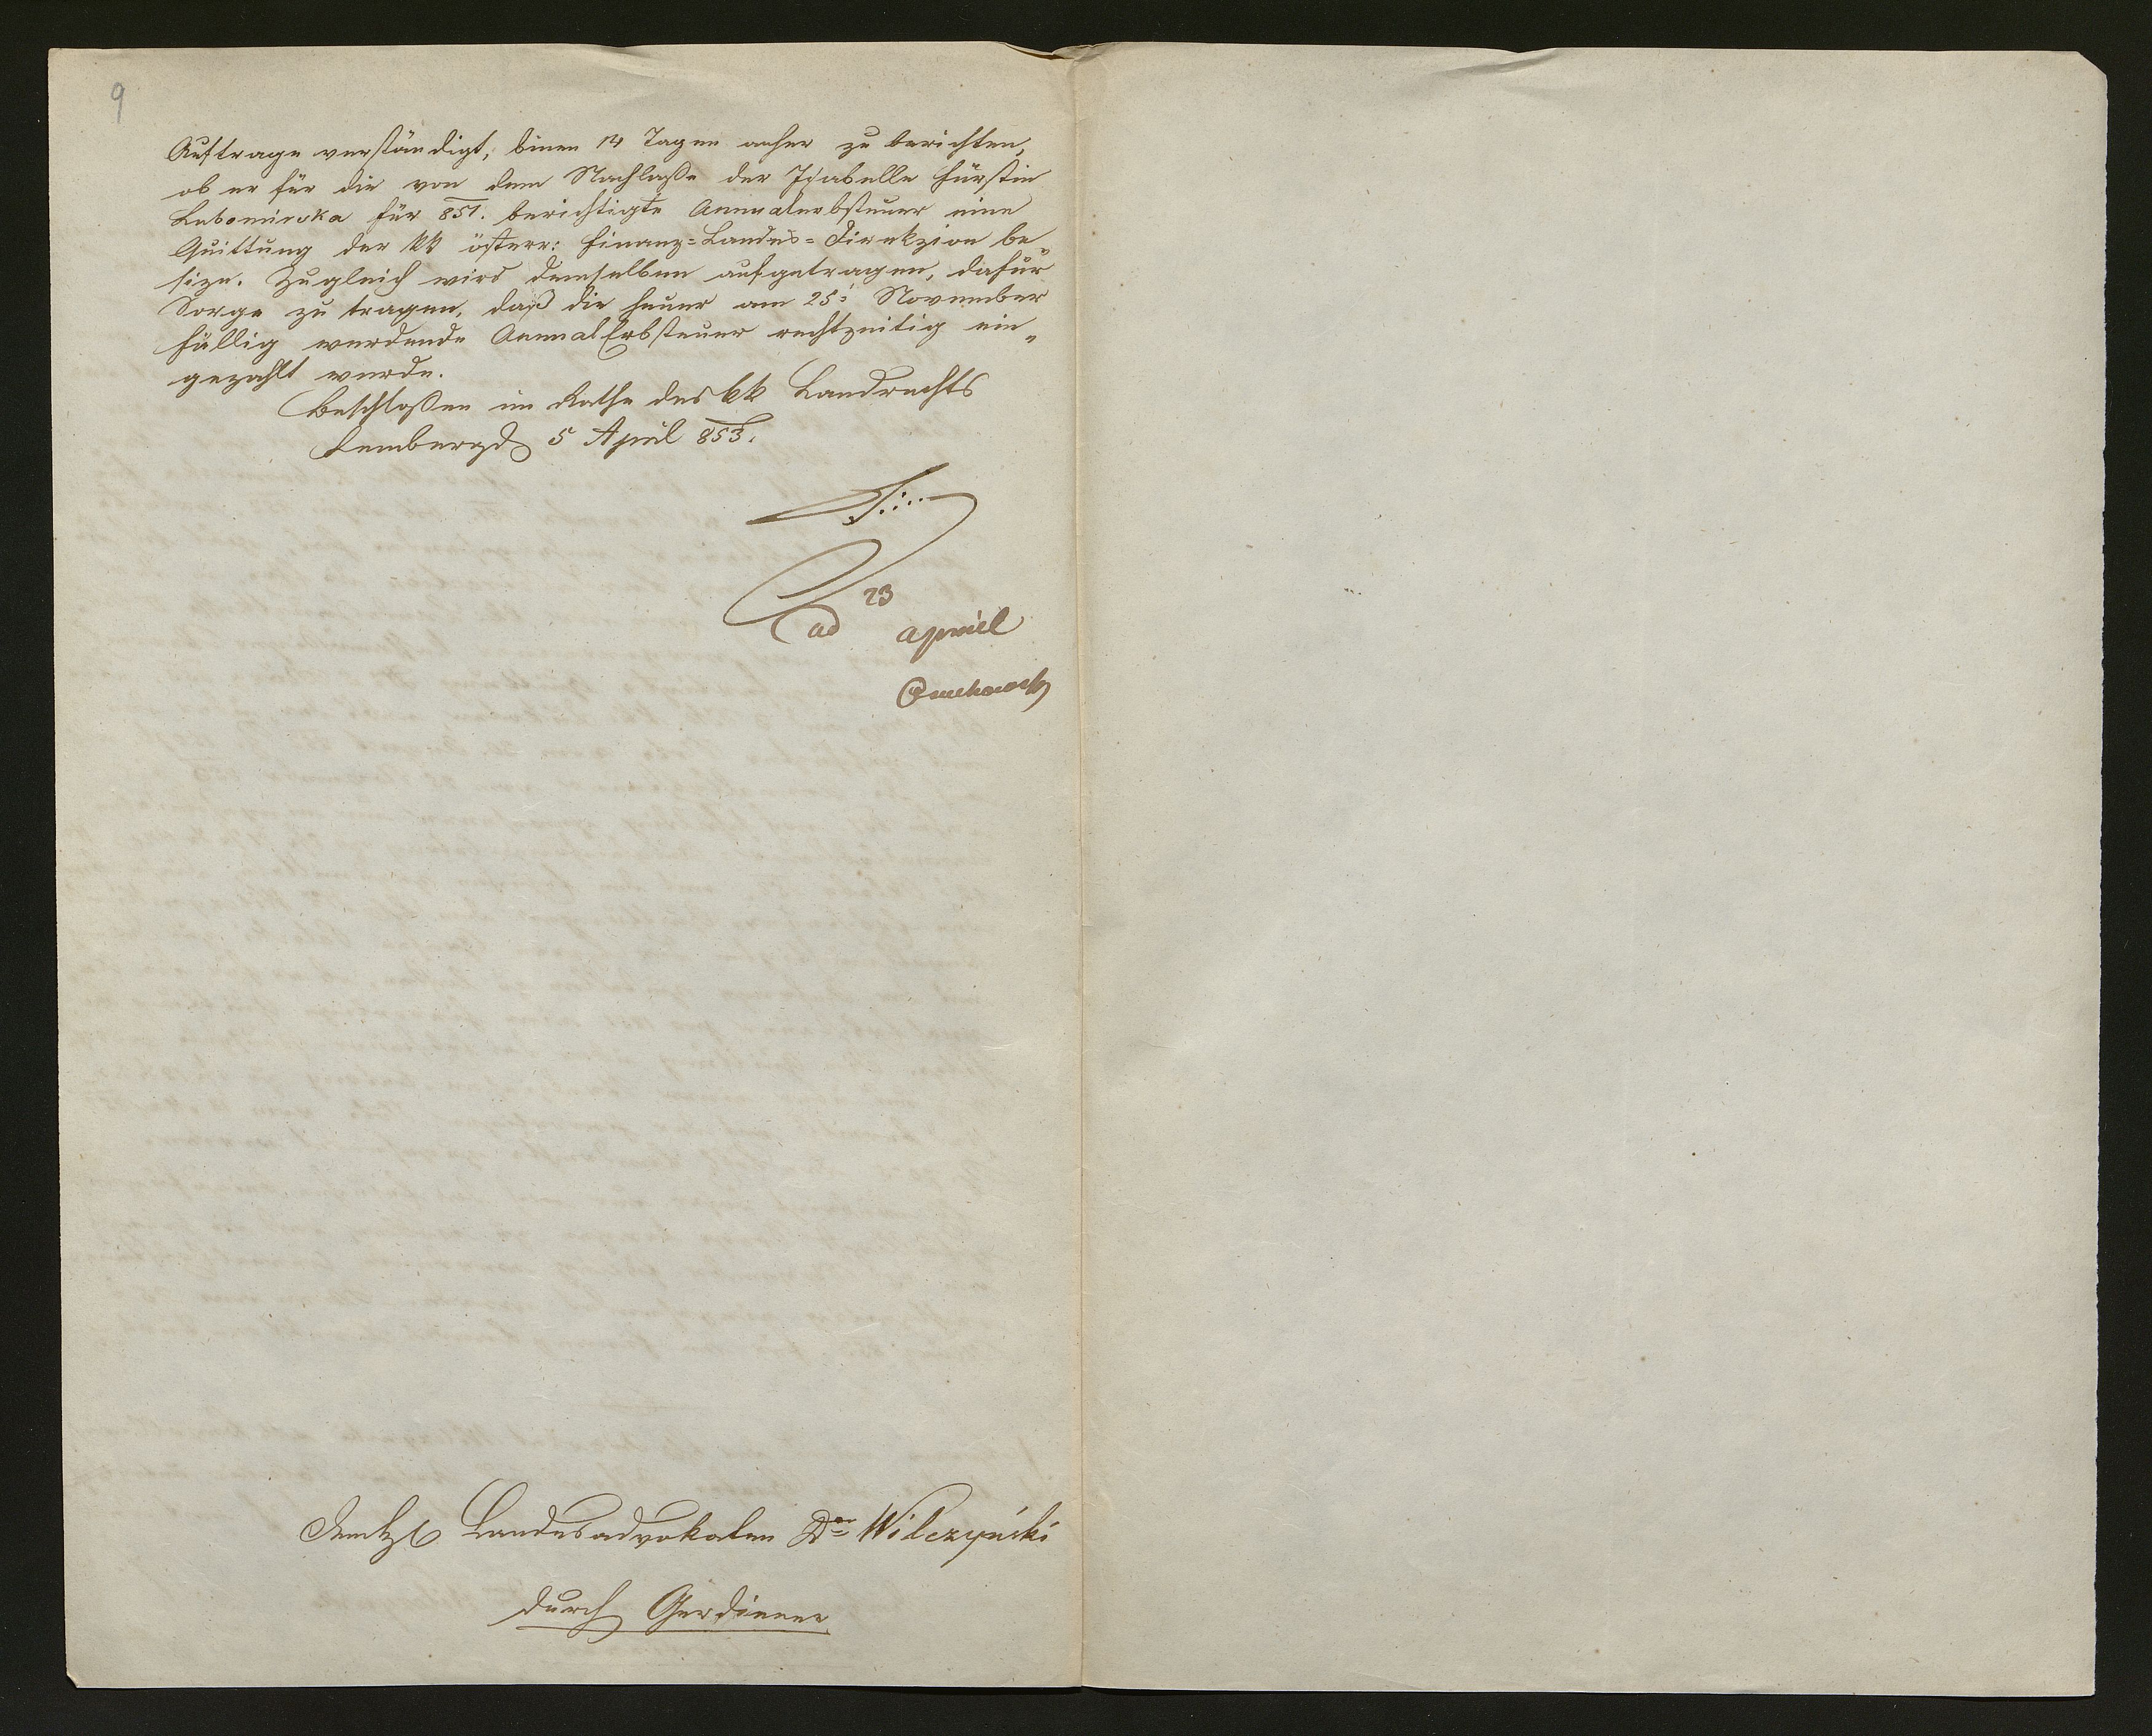 9
Auftrage verständigt, binen 14 Tagen anher zu berichten,
ob er für die von dem Nachlaße der Isabelle Fürstin
Lubomirska für 851. berichtigte Annualerbsteuer eine
Quittung der kk österr: Finanz=Landes=Direkzion be„
size. Zugleich wird demselben aufgetragen, dafür
Sorge zu tragen, daß die heuer am 25: November
fällig werdende AnnualErbsteuer rechtzeitig ein„
gezahlt werde.
Beschloßen im Rathe des kk Landrechts
Lemberg d 5 April 853.
23
ad april
Landesadvokaten Dor Wilczyński
durch Gerdiener